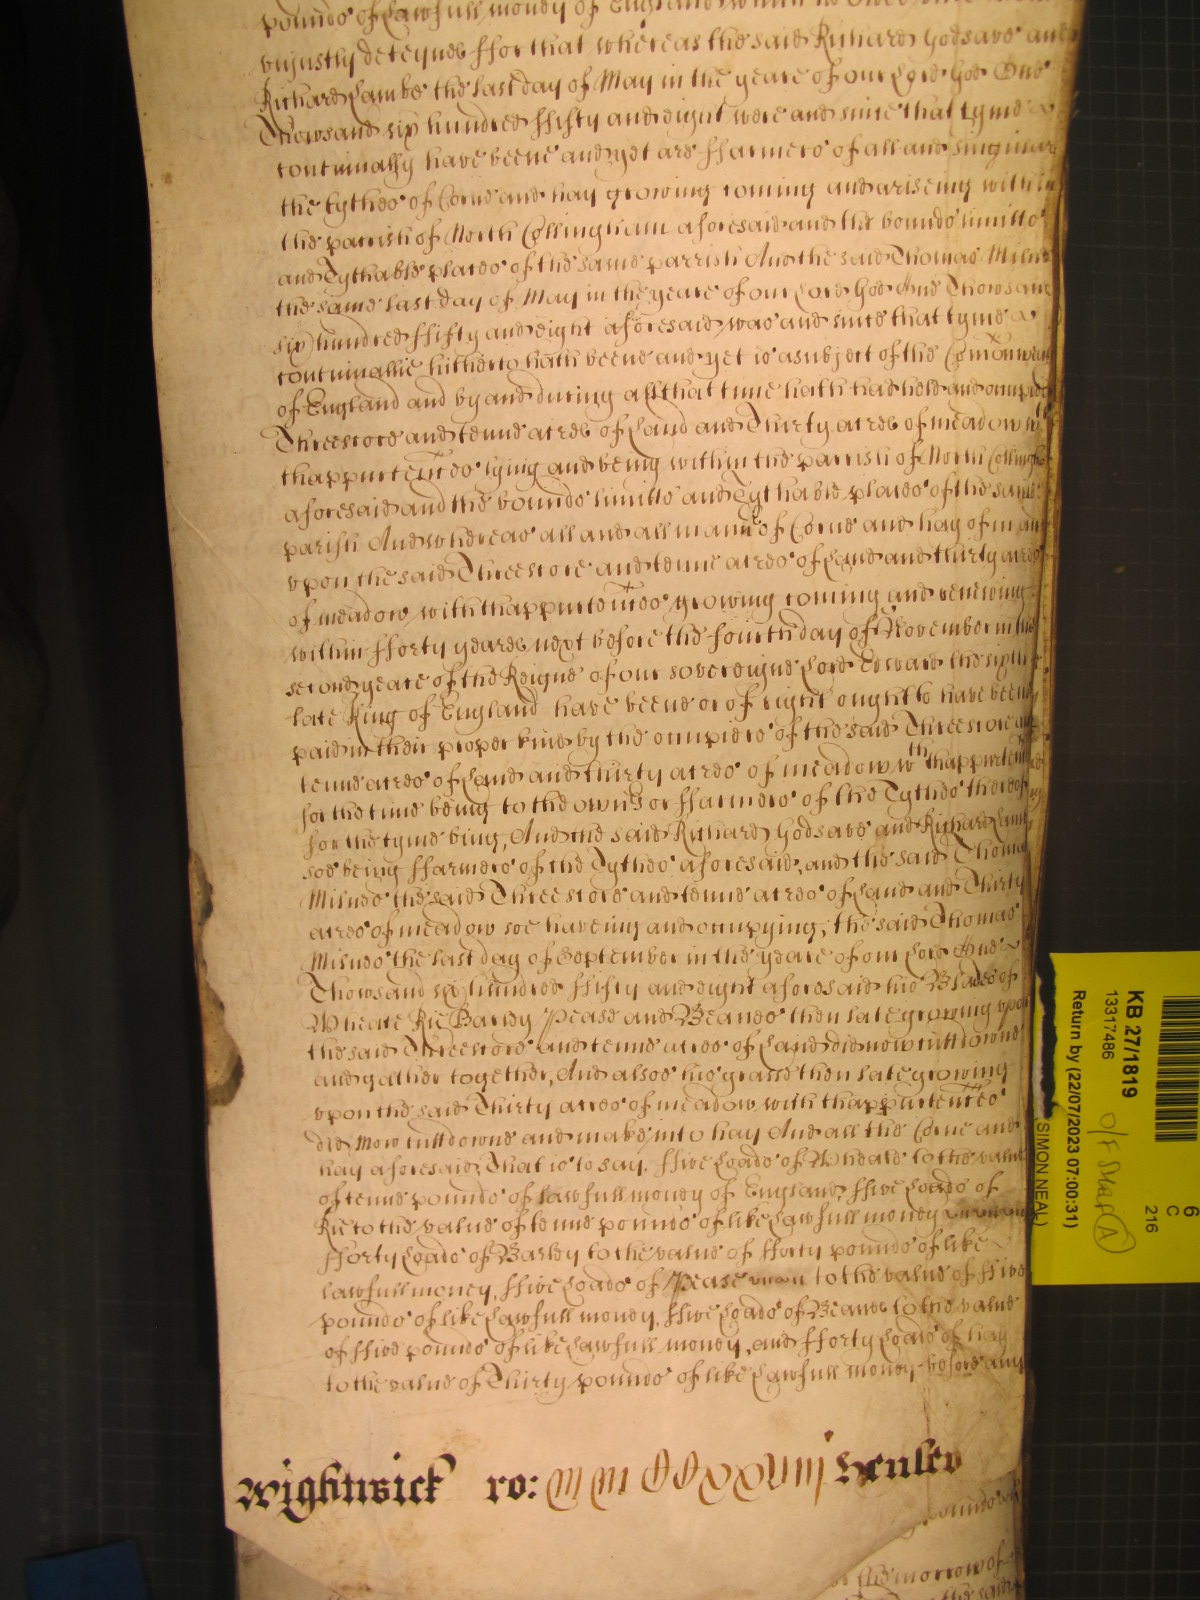 pounds of lawfull money of England
uniustly deteynes ffor that whereas the said Richard Godsave and
Richard Lambe the last day of May in the yeare of our Lord God One
Thowsand six hundred ffifty and eight were and since that tyme
continually have beene and yet are ffarmers of all and singular
the tythes of Corne and hay growing coming and ariseing within
the parrish of North Collingham aforesaid and the bounds limitts
and Tythable places of the same parrish And the said Thomas Milnes
the same last day of May in the yeare of our Lord God One Thowsand
six hundred ffifty and eight aforesaid was and since that tyme
continuallie hitherto hath beene and yet is a subject of the
of England and by and during all that time hath had held and occupied
Threescore and tenne acres of Land and Thirty acres of meadow wth
thappurtentes lying and being within the parrish of North
aforesaid and the bounds limitts and Tythable places of the same
parish And whereas all and all manner of Corne and hay
upon the said Threescore and tenne acres of Land and thirty acres
of meadow with thappurtentes growing coming and renewing
within fforty yeares next before the fourth day of November in the
second yeare of the Reigne of our sovereigne Lord Edward the sixth
late King of England have beene or of right ought to have beene
paid in their proper kind by the occupiers of the said Threescore and
tenne acres of Land and thirty acres of meadow wth
for the time being to the owners or ffarmers of the Tythes thereof
for the tyme being, And the said Richard Godsave and Richard Lambe
soe being ffarmers of the Tythes aforesaid, and the said Thomas
Milnes the said Threescore and tenne acres of Land and Thirty
acres of meadow soe haveing and occupying, the said Thomas
Milnes the last day of September in the yeare of our Lord One
Thowsand six hundred ffifty and eight aforesaid his Blades of
Wheate Rie Barley Pease and Beanes then late growing upon
the said Threescore and tenne acres of Land did mow cutt downe
and gather together, And alsoe his grasse then late growing
upon the said Thirty acres of meadow with thappurtentes
did mow cutt downe and make into hay And all the Corne and
hay aforesaid, That is to say, ffive Loads of Wheate to the value
of tenne pounds of lawfull money of England, ffive Loads of
Rie to the value of tenne pounds of like Lawfull money
fforty Loads of Barley to the value of fforty pounds of like
lawfull money, ffive Loads of Pease to the value of ffive
pounds of like Lawfull money, ffive Loads of Beanes to the value
of ffive pounds of like Lawfull money, and fforty Loads of hay
to the value of Thirty pounds of like Lawfull money before any
Wightwick ro: Henley
morrow of
KB 27/1819
13317486
Return by (22/07/2023 07:00:31)
SIMON NEAL)
6
C
216
A